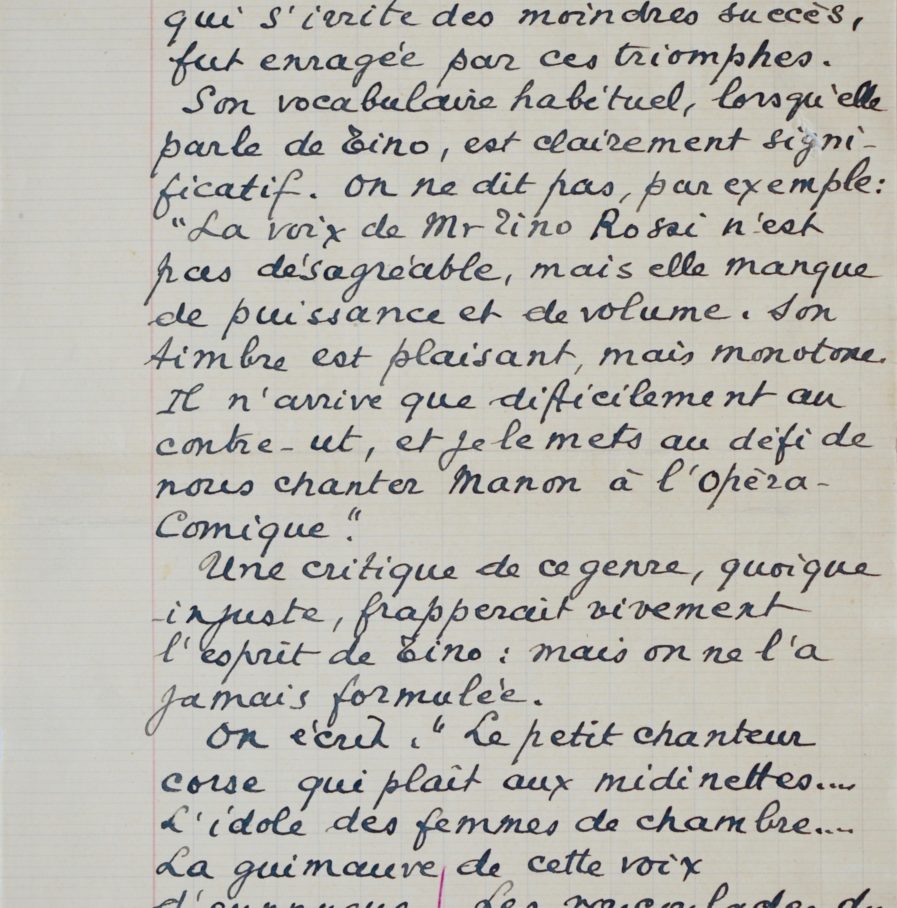 qui s'irrite des moindres succès,
fut enragée par ces triomphes.
Son vocabulaire habituel, lorsqu'elle
parle de Tino, est clairement signi-
ficatif. On ne dit pas, par exemple:
"La voix de Mr Tino Rossi n'est
pas désagréable, mais elle manque
de puissance et de volume. Son
timbre est plaisant, mais monotone.
Il n'arrive que difficilement au
contre-ut, et je le mets au défi de
nous chanter Manon à l'Opéra-
Comique".
Une critique de ce genre, quoique
injuste, frapperait vivement
l'esprit de Tino : mais on ne l'a
jamais formulée.
On écrit : "Le petit chanteur
corse qui plaît aux midinettes....
L'idole des femmes de chambre....
La guimauve de cette voix
Les roucoulades du